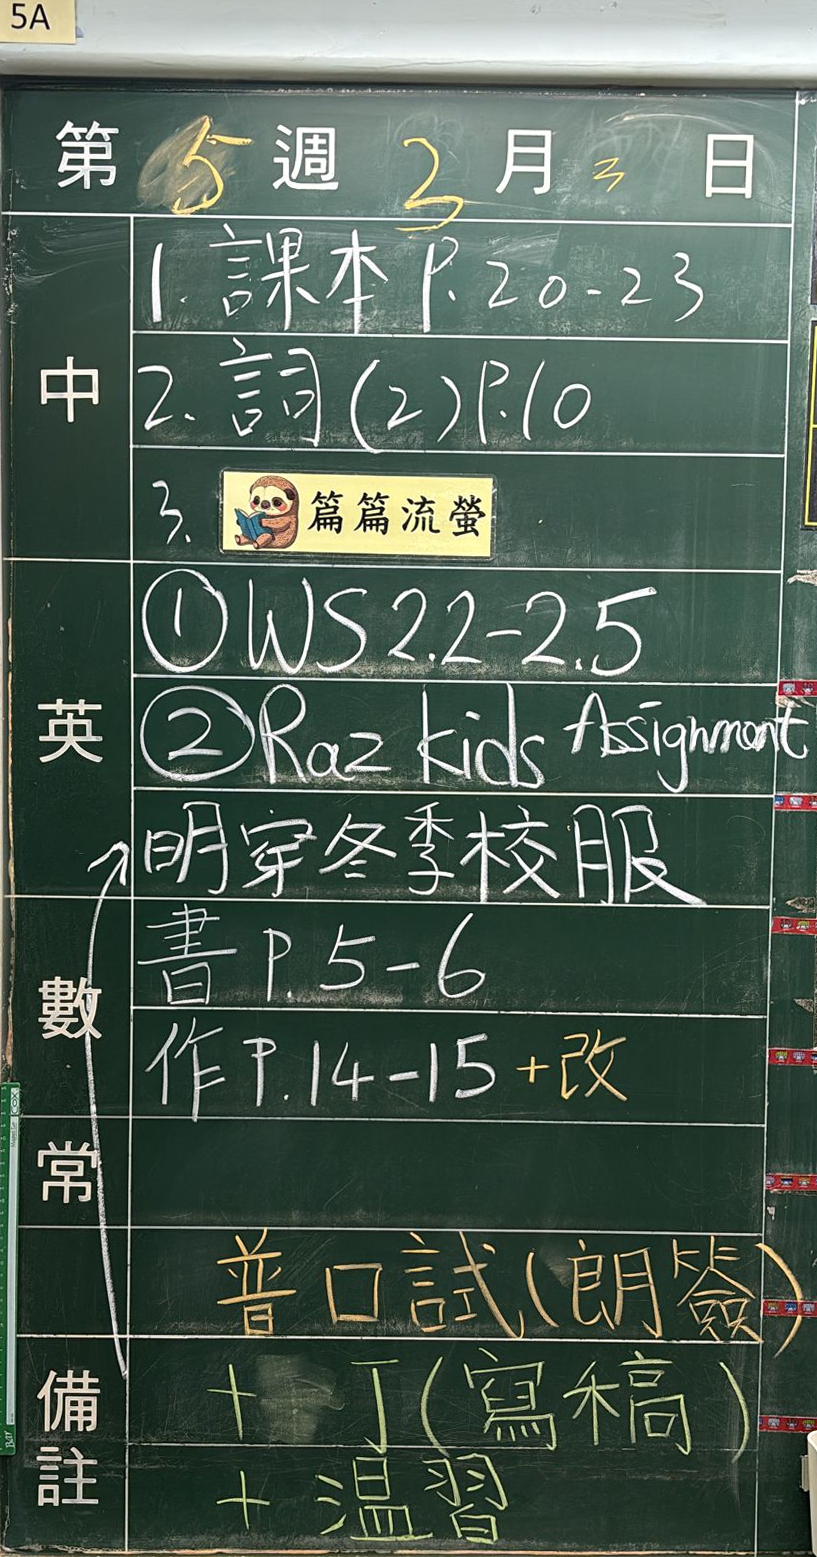 5A
第5週3月3日
中
1. 課本 P. 20-23
2. 詞(2)P.10
3. 篇篇流螢
英
① WS 2.2-2.5
② Raz kids Assignment
明穿冬季校服
數
書 P. 5-6
作 P. 14-15 +改
常
普口試(朗簽)
備註
+ 丁(寫稿)
+ 溫習